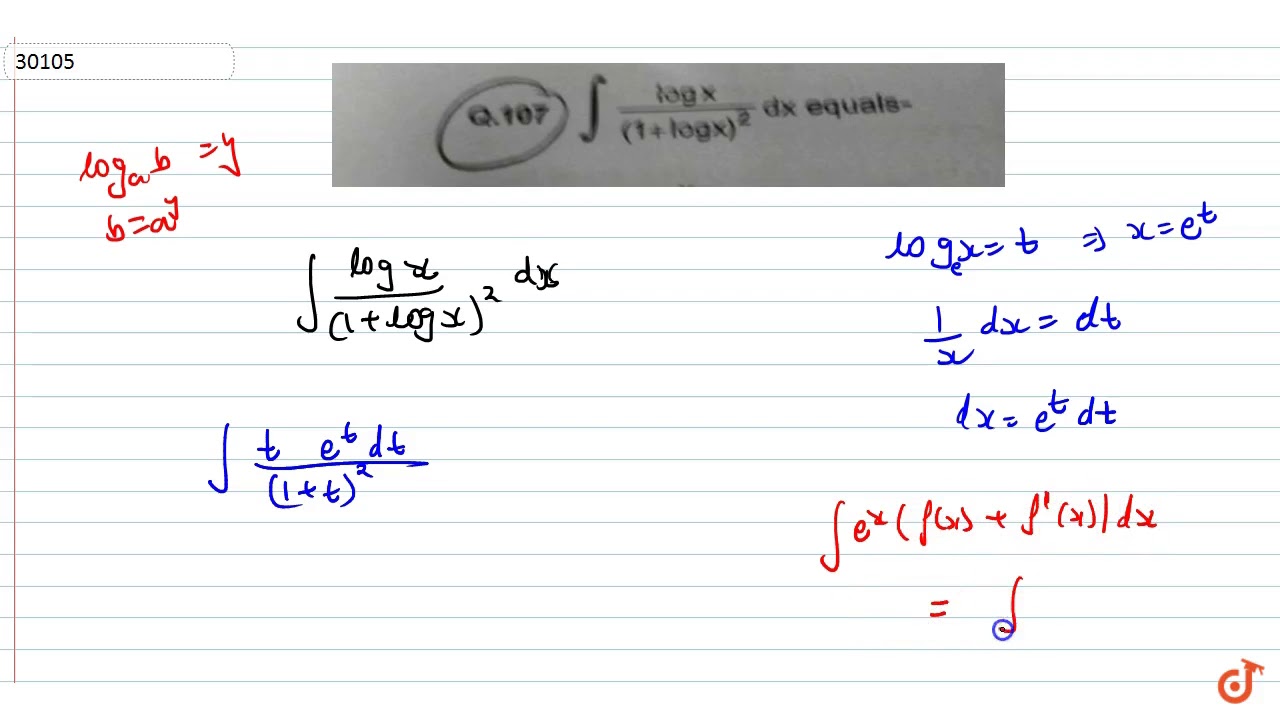 30105
Q.107 ∫ log x / (1+logx)² dx equals-
log_a b = y
b = a^y
∫ log x / (1 + log x)² dx
log_e x = t ⇒ x = e^t
1/x dx = dt
dx = e^t dt
∫ t e^t dt / (1+t)²
∫ e^x (f(x) + f'(x)) dx
= ∫